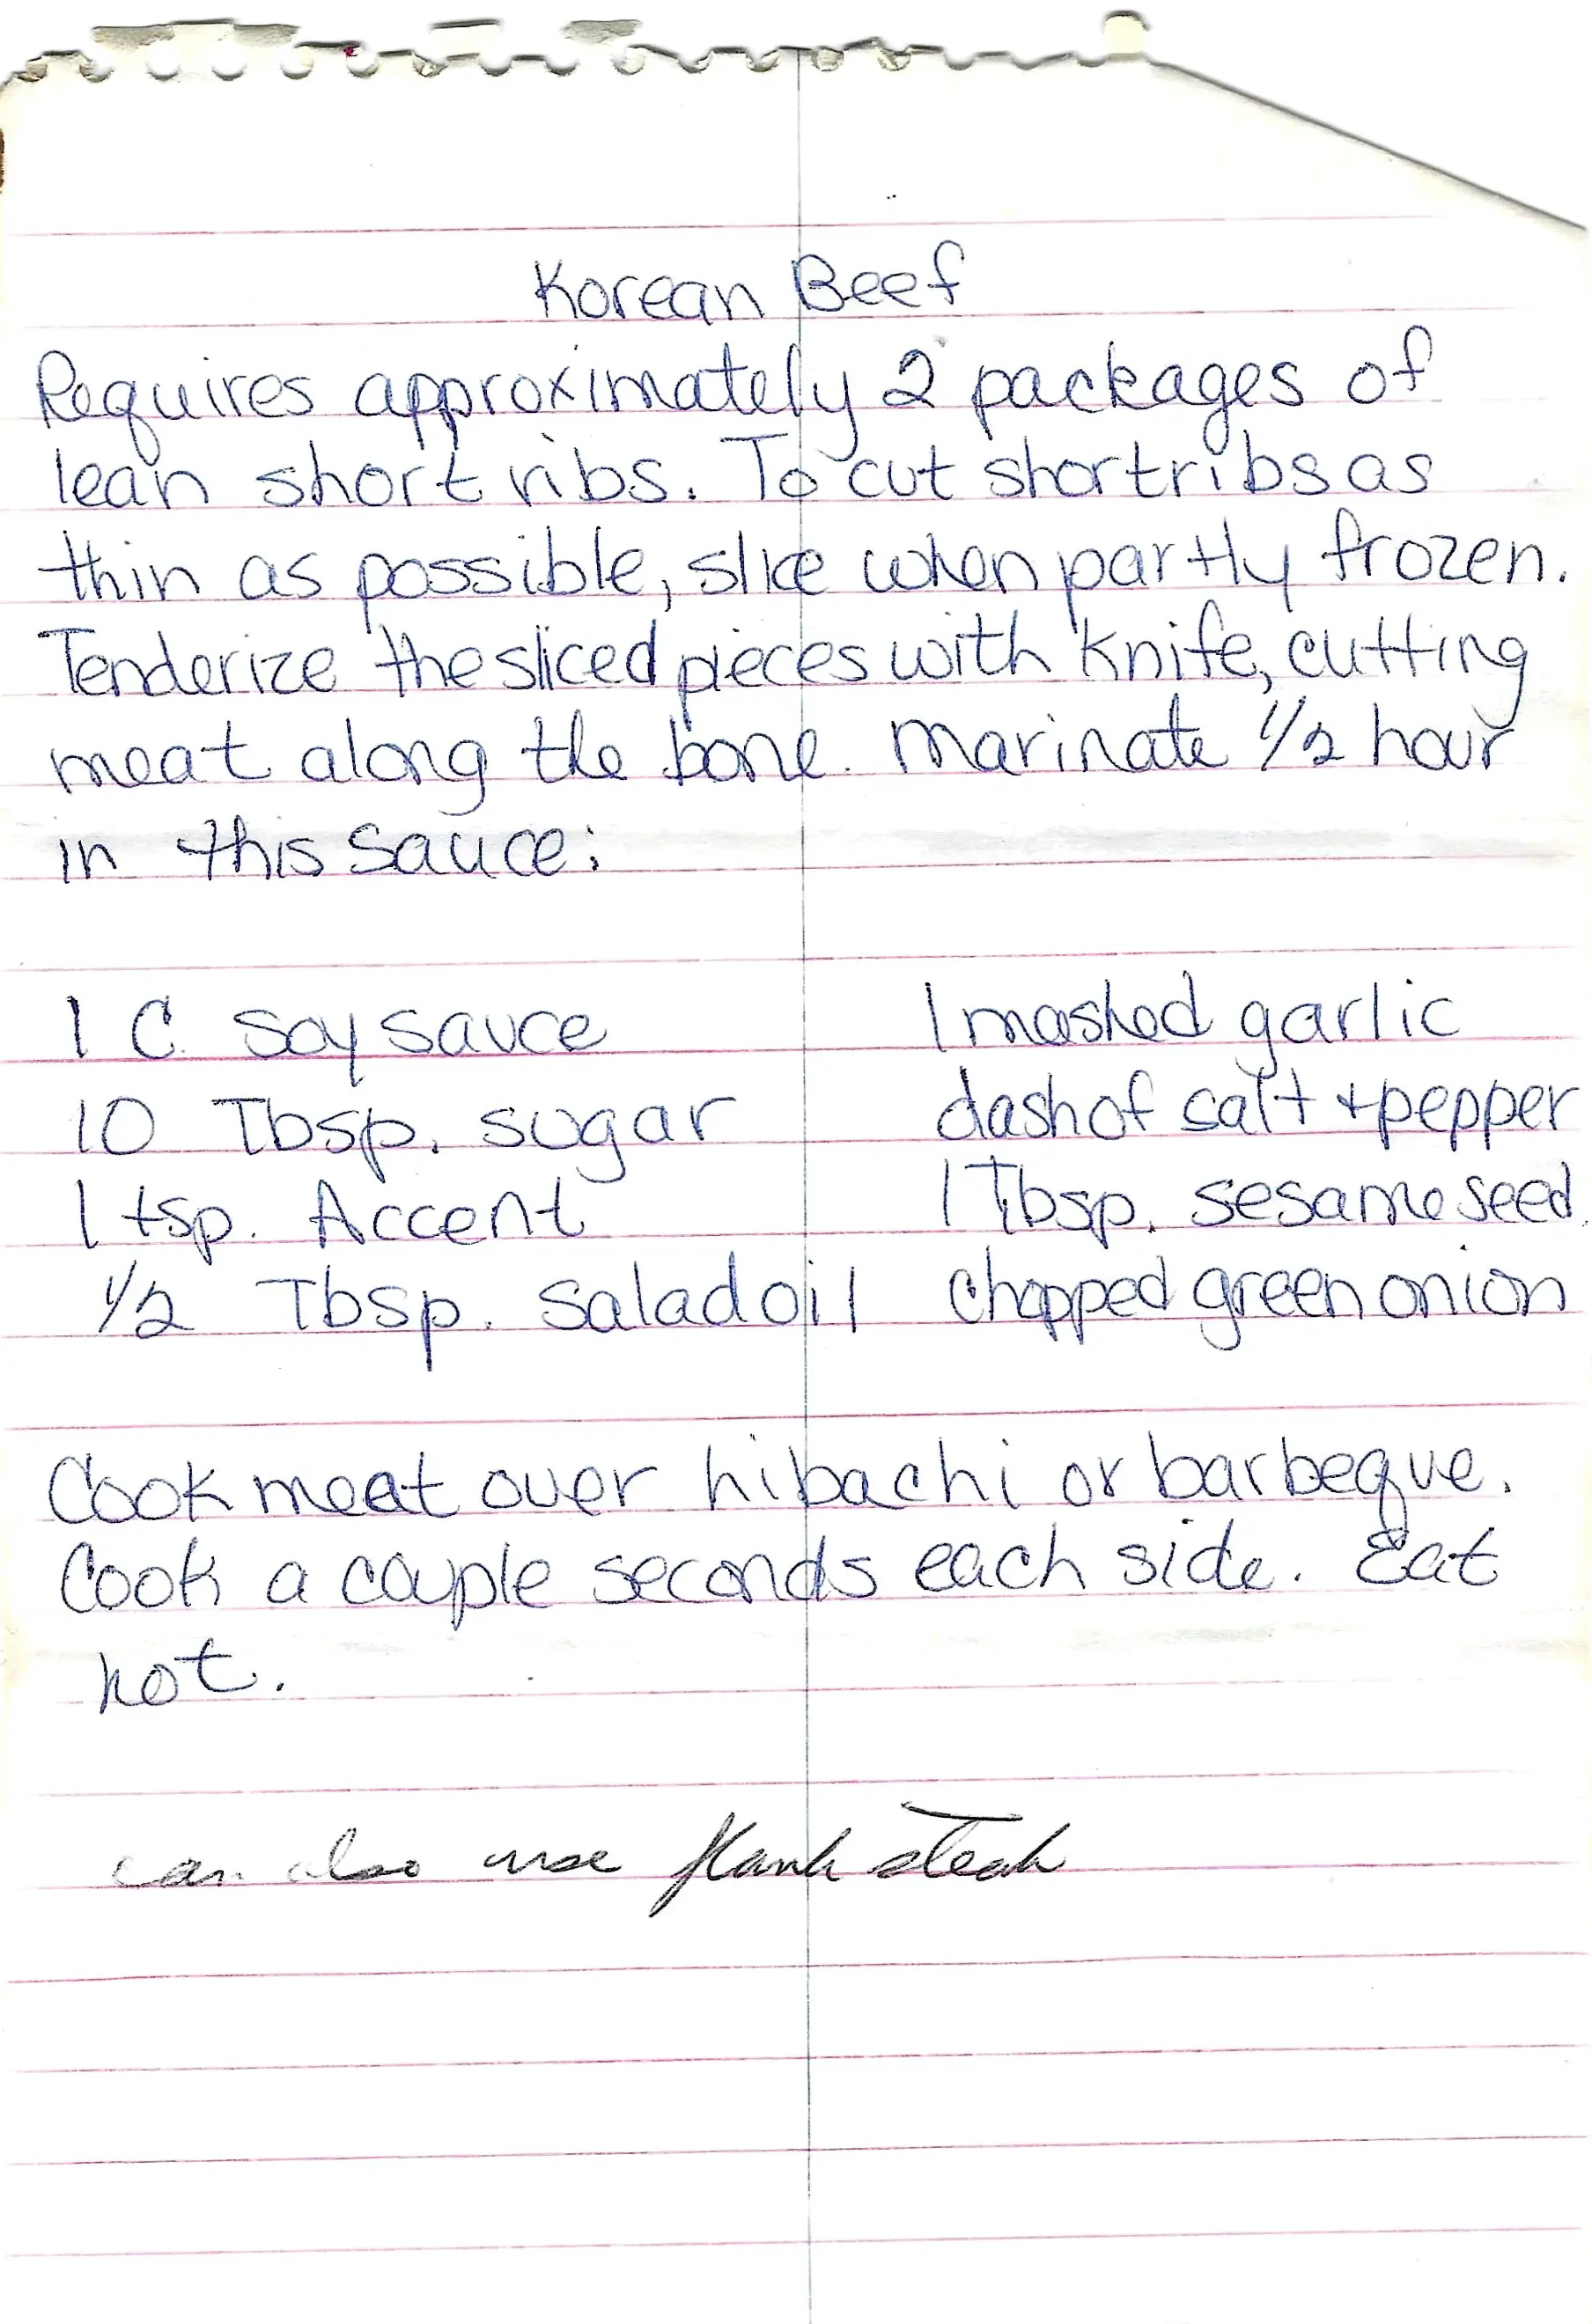 Korean Beef
Requires approximately 2 packages of
lean short ribs. To cut shortribs as
thin as possible, slice when partly frozen.
Tenderize the sliced pieces with knife, cutting
meat along the bone. Marinate 1/2 hour
in this sauce:
1 C. soy sauce
10 Tbsp. sugar
1 tsp. Accent
1/2 Tbsp. salad oil
1 mashed garlic
dash of salt + pepper
1 Tbsp. sesame seed.
chopped green onion
Cook meat over hibachi or barbeque.
Cook a couple seconds each side. Eat
hot.
can also use flank steak